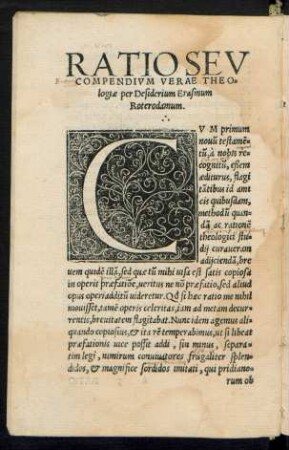 RATIO SEV
COMPENDIVM VERAE THEO-
logiæ per Desiderium Erasmum
Roterodamum.
C
V M primum
nouũ testamẽ
tũ, à nobis re
cognitũ, essem
æditurus, flagi
tãtibus id ami
cis quibusdam,
methodũ quan
dã ac rationẽ
theologici stu
dij curaueram
adijciendã, bre
uem quidẽ illã, sed quæ tũ mihi uisa est satis copiosa
in operis præfatiõe, ueritus ne nõ præfatio, sed aliud
opus operi additũ uideretur. Qd si hæc ratio me nihil
mouisset, tamẽ operis celeritas, iam ad metam decur
rentis, breuitatem flagitabat. Nunc idem agemus ali
quando copiosius, & ita rẽ temperabimus, ut si libeat
præfationis uice possit addi, sin minus, separa-
tim legi, nimirum conuiuatores frugaliter splen-
didos, & magnifice sordidos imitati, qui pridiano-
rum ob